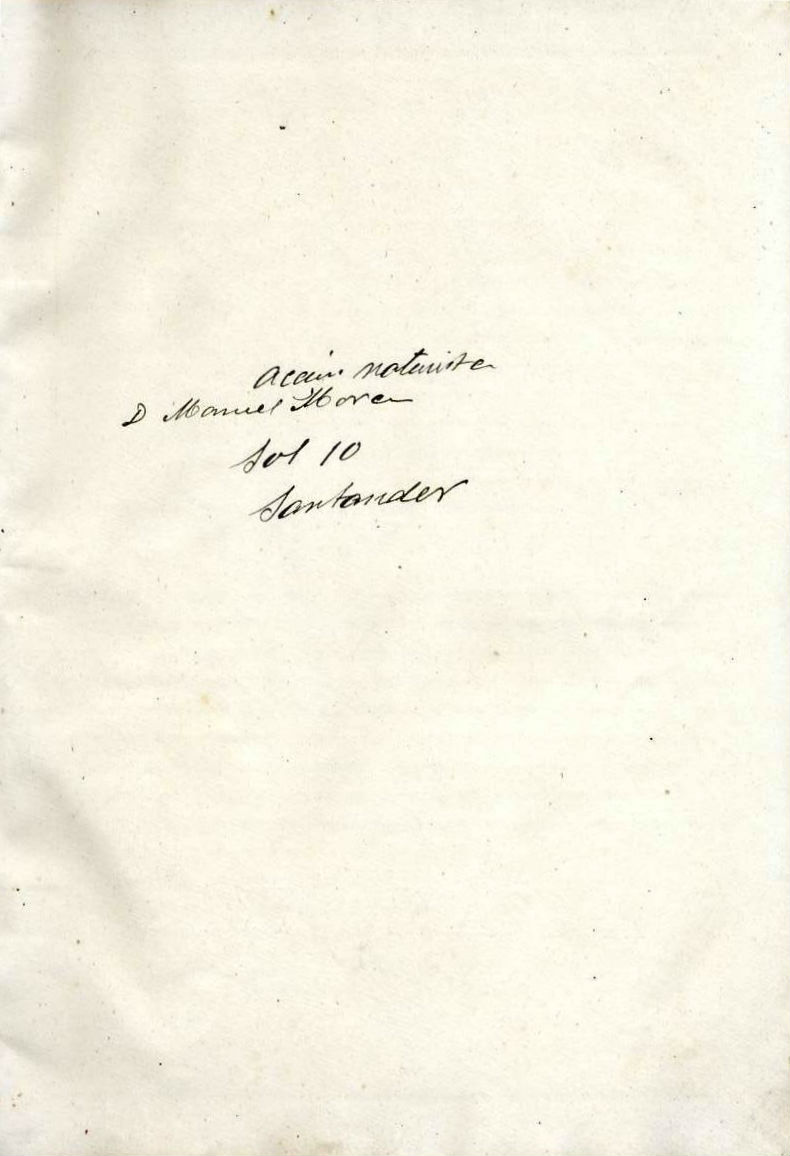 Acción naturista
D Manuel Mora
Sol 10
Santander